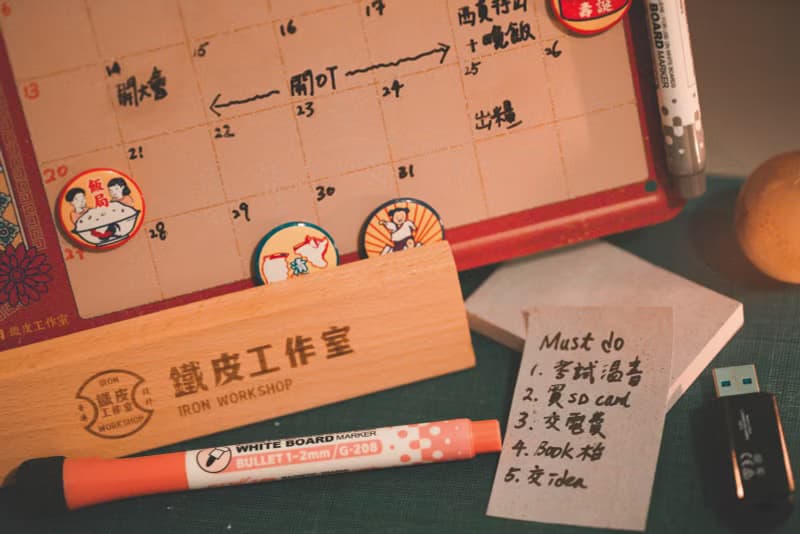 16
17
西貢行山
+晚飯
壽誕
BOARD MARKER
13
14
15
開大會
開OT
22
23
24
25
26
出糧
20
21
飯局
27
28
29
30
31
鐵皮工作室
IRON
鐵皮
工作室
WORKSHOP
鐵皮工作室
IRON WORKSHOP
WHITE BOARD MARKER
BULLET 1-2mm / G-208
Must do
1. 考試溫書
2. 買SD card
3. 交電費
4. Book枱
5. 交idea